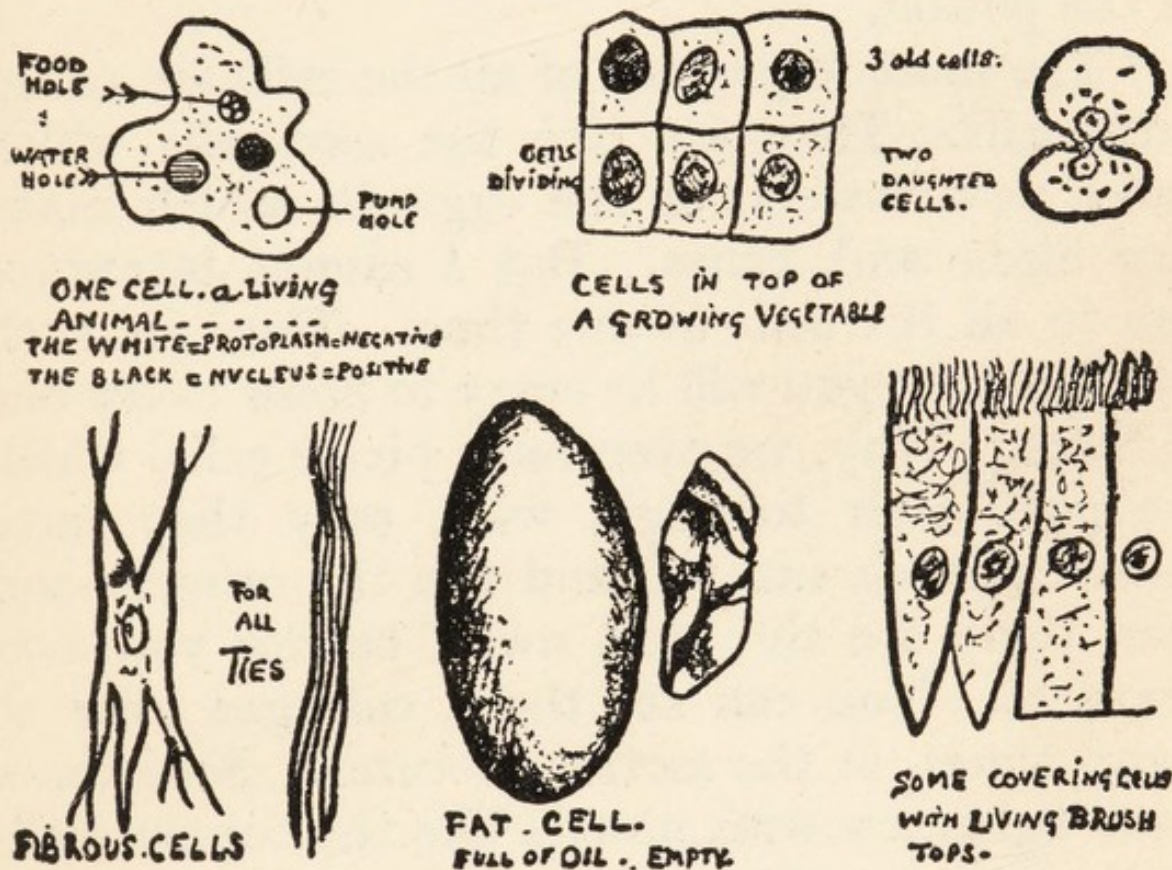 FOOD
HOLE
WATER
HOLE
PUMP
HOLE
ONE CELL. a LIVING
ANIMAL - - - - - -
THE WHITE=PROTOPLASM=NEGATIVE
THE BLACK = NUCLEUS=POSITIVE
CELLS
DIVIDING
3 old cells.
TWO
DAUGHTER
CELLS.
CELLS IN TOP OF
A GROWING VEGETABLE
FOR
ALL
TIES
FIBROUS.CELLS
FAT. CELL.
FULL OF OIL., EMPTY
SOME COVERING CELLS
WITH LIVING BRUSH
TOPS-